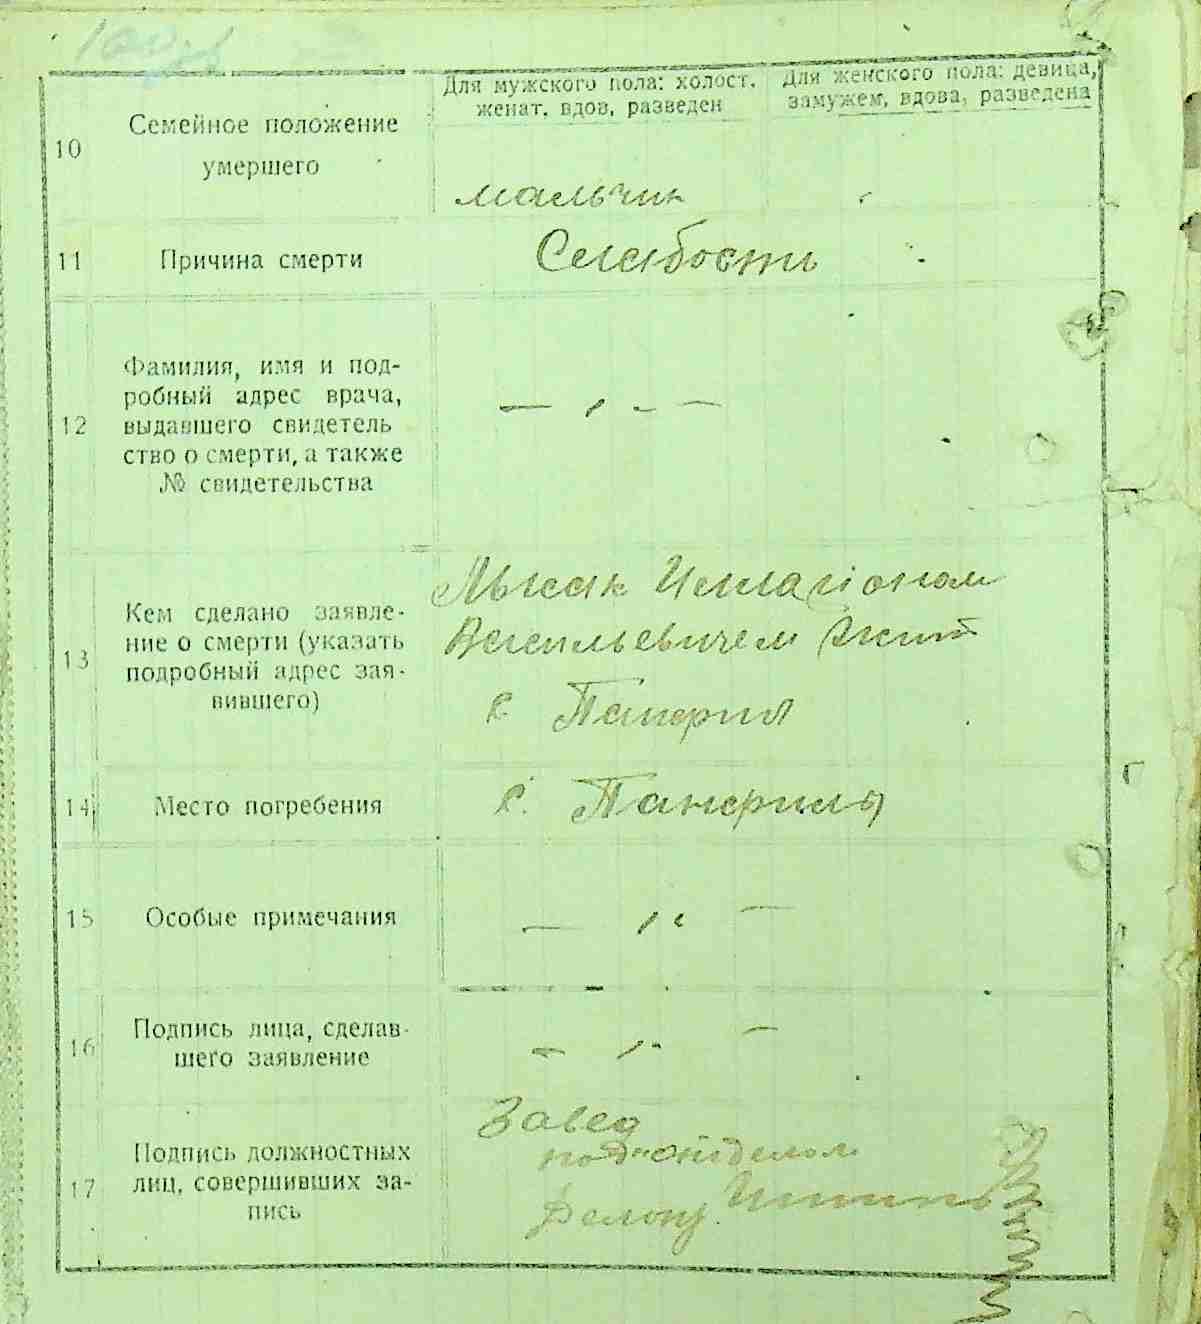 Для мужского пола: холост, женат, вдов, разведен
Для женского пола: девица, замужем, вдова, разведена
10
Семейное положение
умершего
мальчик
11
Причина смерти
Слабость
12
Фамилия, имя и под-
робный адрес врача,
выдавшего свидетель
ство о смерти, а также
№ свидетельства
13
Кем сделано заявле-
ние о смерти (указать
подробный адрес зая-
вившего)
Васильевичем
с
14
Место погребения
с.
15
Особые примечания
16
Подпись лица, сделав-
шего заявление
17
Подпись должностных
лиц, совершивших за-
пись
Завед
под-отделом